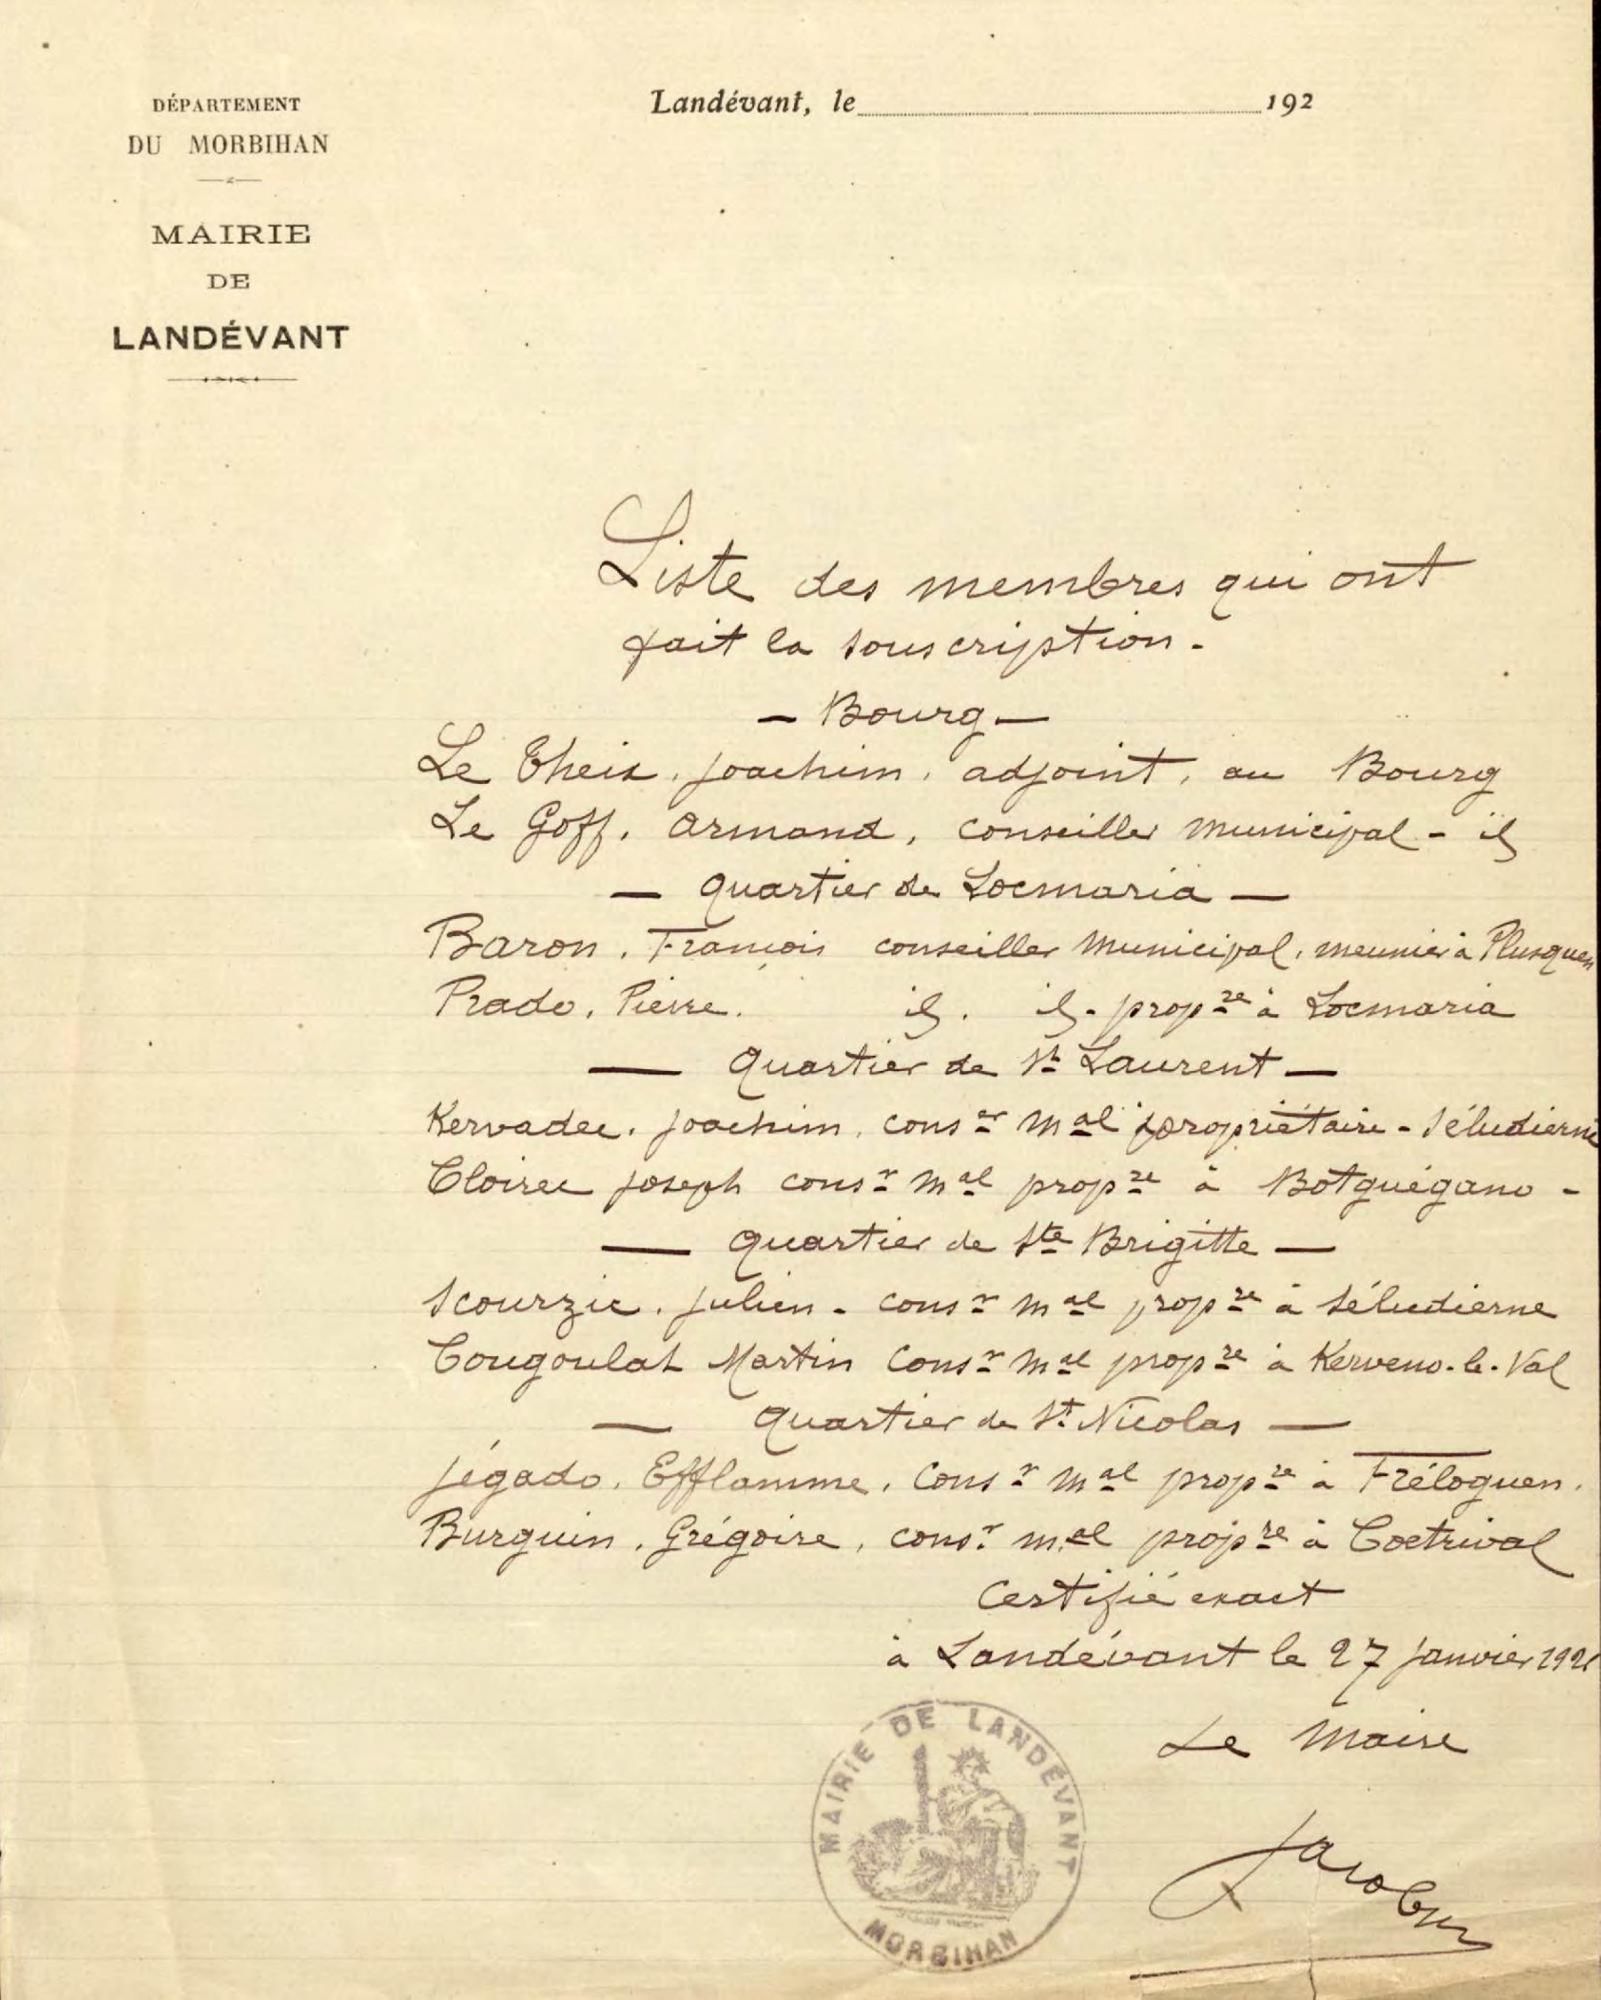 DÉPARTEMENT
DU MORBIHAN
MAIRIE
DE
LANDÉVANT
Landévant, le 192
Liste des membres qui ont
fait la souscription.
— Bourg —
Le Theix. Joachim, adjoint, au Bourg
Le Goff. Armand, conseiller municipal - id
— quartier de Locmaria —
Baron. François conseiller municipal, meunier à Plusquen
Prado. Pierre. id. id. propre à Locmaria
— quartier de St Laurent —
Kervadec. Joachim, conser mal propriétaire - Séludierne
Cloirec Joseph consr mal propre à Botguégano -
— quartier de Ste Brigitte —
Scourzic. Julien - consr mal propre à Séludierne
Cougoulat Martin consr mal propre à Kerveno-le-Val
— quartier de St. Nicolas —
Jégado. Efflamme, consr mal propre à Fréloguen.
Burguin. Grégoire, consr mal propre à Coetrival
Certifié exact
à Landévant le 27 Janvier 192
Le Maire
MAIRIE DE LANDÉVANT
MORBIHAN